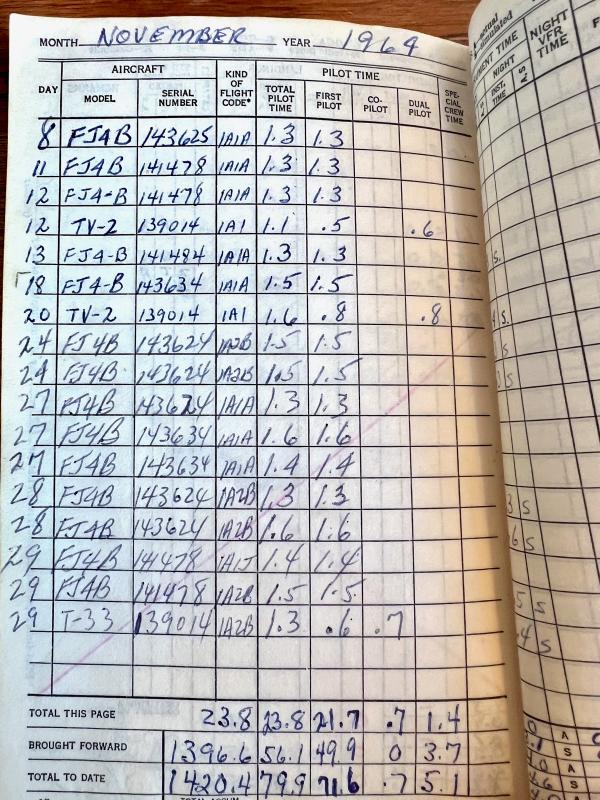 MONTH NOVEMBER YEAR 1964
AIRCRAFT PILOT TIME
DAY MODEL SERIAL NUMBER KIND OF FLIGHT CODE* TOTAL PILOT TIME FIRST PILOT CO-PILOT DUAL PILOT SPE-CIAL CREW TIME
8 FJ4B 143625 1A1A 1.3 1.3
11 FJ4B 141478 1A1A 1.3 1.3
12 FJ4-B 141478 1A1A 1.3 1.3
12 TV-2 139014 1A1 1.1 .5 .6
13 FJ4-B 141484 1A1A 1.3 1.3
18 FJ4-B 143634 1A1A 1.5 1.5
20 TV-2 139014 1A1 1.6 .8 .8
24 FJ4B 143624 1A2B 1.5 1.5
24 FJ4B 143624 1A2B 1.5 1.5
27 FJ4B 143624 1A1A 1.3 1.3
27 FJ4B 143634 1A1A 1.6 1.6
27 FJ4B 143634 1A1A 1.4 1.4
28 FJ4B 143624 1A2B 1.3 1.3
28 FJ4B 143624 1A2B 1.6 1.6
29 FJ4B 141478 1A1J 1.4 1.4
29 FJ4B 141478 1A2B 1.5 1.5
29 T-33 139014 1A2B 1.3 .6 .7
TOTAL THIS PAGE 23.8 23.8 21.7 .7 1.4
BROUGHT FORWARD 1396.6 56.1 49.9 0 3.7
TOTAL TO DATE 1420.4 79.9 71.6 .7 5.1
NIGHT VFR TIME
NIGHT
INST. TIME